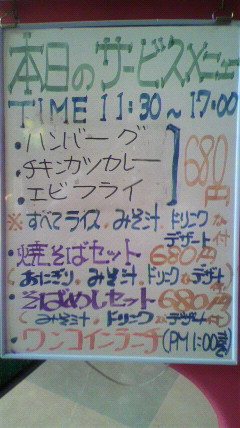 本日のサービスメニュー
TIME 11:30～17:00
・ハンバーグ
・チキンカツカレー
・エビフライ
680円
※すべてライス.みそ汁.ドリンク
デザート付
・焼そばセット 680円
(おにぎり.みそ汁.ドリンク.デザート付)
・そばめしセット 680円
(みそ汁.ドリンク.デザート付)
・ワンコインランチ(PM1:00まで)